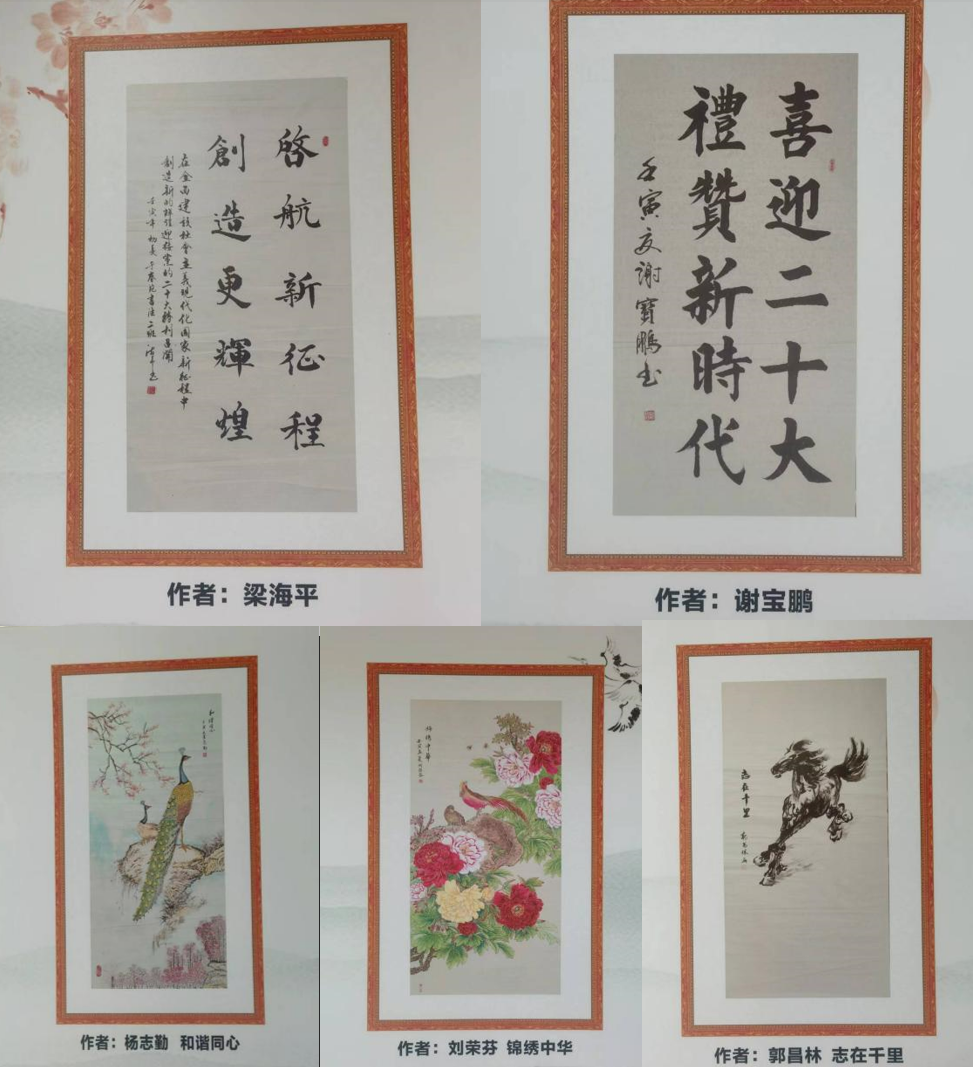 啓航新征程
創造更輝煌
在全面建設社会主義現代化国家新征程中
創造新的輝煌迎接党的二十大勝利召開
作者：梁海平
喜迎二十大
禮贊新時代
壬寅夏谢寶鵬书
作者：谢宝鹏
作者：杨志勤 和谐同心
锦绣中华
作者：刘荣芬 锦绣中华
志在千里
作者：郭昌林 志在千里